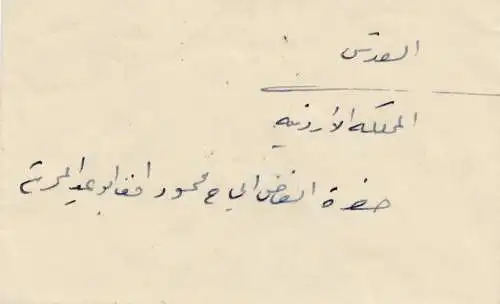 القدس
المملكه الأردنيه
حضرة الفاضل الحاج محمود افندي عيد المحترم